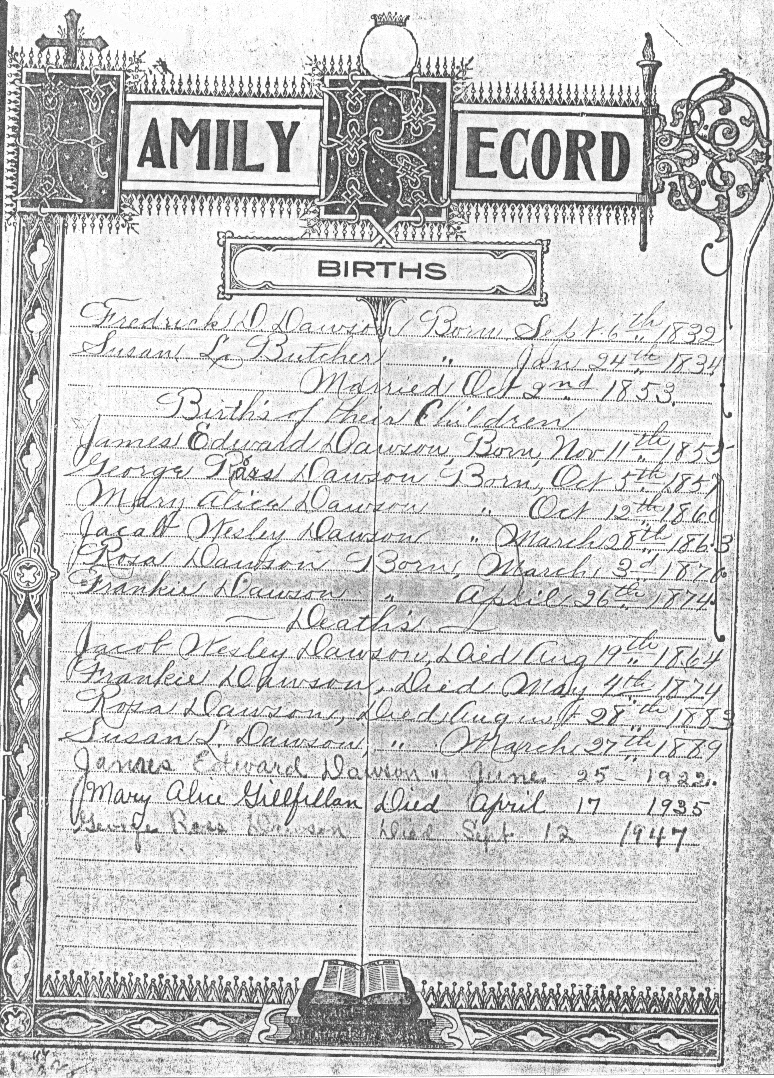 FAMILY RECORD
BIRTHS
Fredrick D. Dawson Born Sept 6th 1832
Susan L. Butcher " Jan 24th 1834
Married Oct 2nd 1853.
Births of their Children
James Edward Dawson, Born, Nov 11th 1855
George Ross Dawson Born, Oct 5th
Mary Alice Dawson " Oct 12th
Jacob Wesley Dawson " March 28th 1863
Rosa Dawson Born, March, 3d
Frankie Dawson " April 26th 1874
Death's
Jacob Wesley Dawson, Died Aug 19th 1864
Frankie Dawson, Died, May 1874
Rosa Dawson, Died August 28th 1883
Susan L. Dawson, " March 27th 1889
James Edward Dawson " June 25 - 1922.
Mary Alice Gillfillan Died April 17 1935
George Ross Dawson Died Sept 12 1947